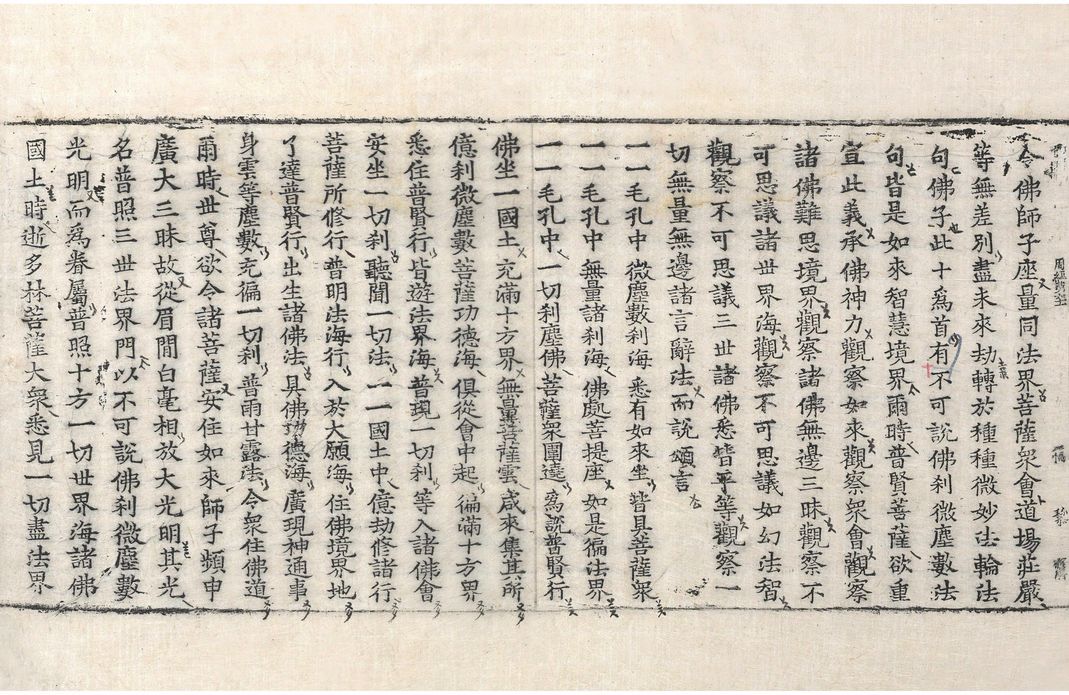 令佛師子座量同法界菩薩衆會道場莊嚴
等無差別盡未來劫轉於種種微妙法輪法
句佛子此十爲首有不可說佛刹微塵數法
句皆是如來智慧境界爾時普賢菩薩欲重
宣此義承佛神力觀察如來觀察衆會觀察
諸佛難思境界觀察諸佛無邊三昧觀察不
可思議諸世界海觀察不可思議如幻法智
觀察不可思議三世諸佛悉皆平等觀察一
切無量無邊諸言辭法而說頌言
一一毛孔中微塵數刹海悉有如來坐皆具菩薩衆
一一毛孔中無量諸刹海佛處菩提座如是徧法界
一一毛孔中一切刹塵佛菩薩衆圍遶爲說普賢行
佛坐一國土充滿十方界無量菩薩雲咸來集其所
億刹微塵數菩薩功德海俱從會中起徧滿十方界
悉住普賢行皆遊法界海普現一切刹等入諸佛會
安坐一切刹聽聞一切法一一國土中億劫修諸行
菩薩所修行普明法海行入於大願海住佛境界地
了達普賢行出生諸佛法具佛功德海廣現神通事
身雲等塵數充徧一切刹普雨甘露法令衆住佛道
爾時世尊欲令諸菩薩安住如來師子頻申
廣大三昧故從眉間白毫相放大光明其光
名普照三世法界門以不可說佛刹微塵數
光明而爲眷屬普照十方一切世界海諸佛
國土時逝多林菩薩大衆悉見一切盡法界